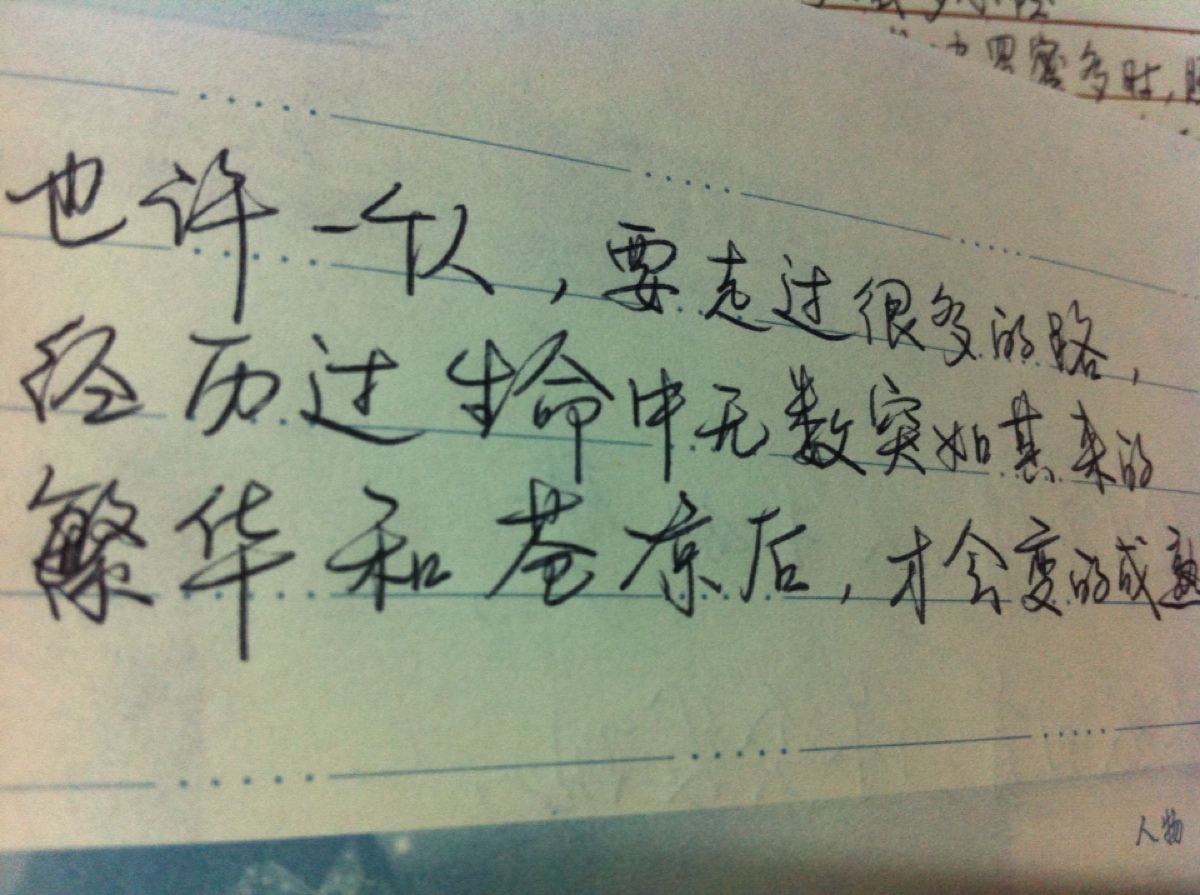 罗蜜多时,
也许一个人,要走过很多的路,
经历过生命中无数突如其来的
繁华和苍凉后,才会变的成熟
人物